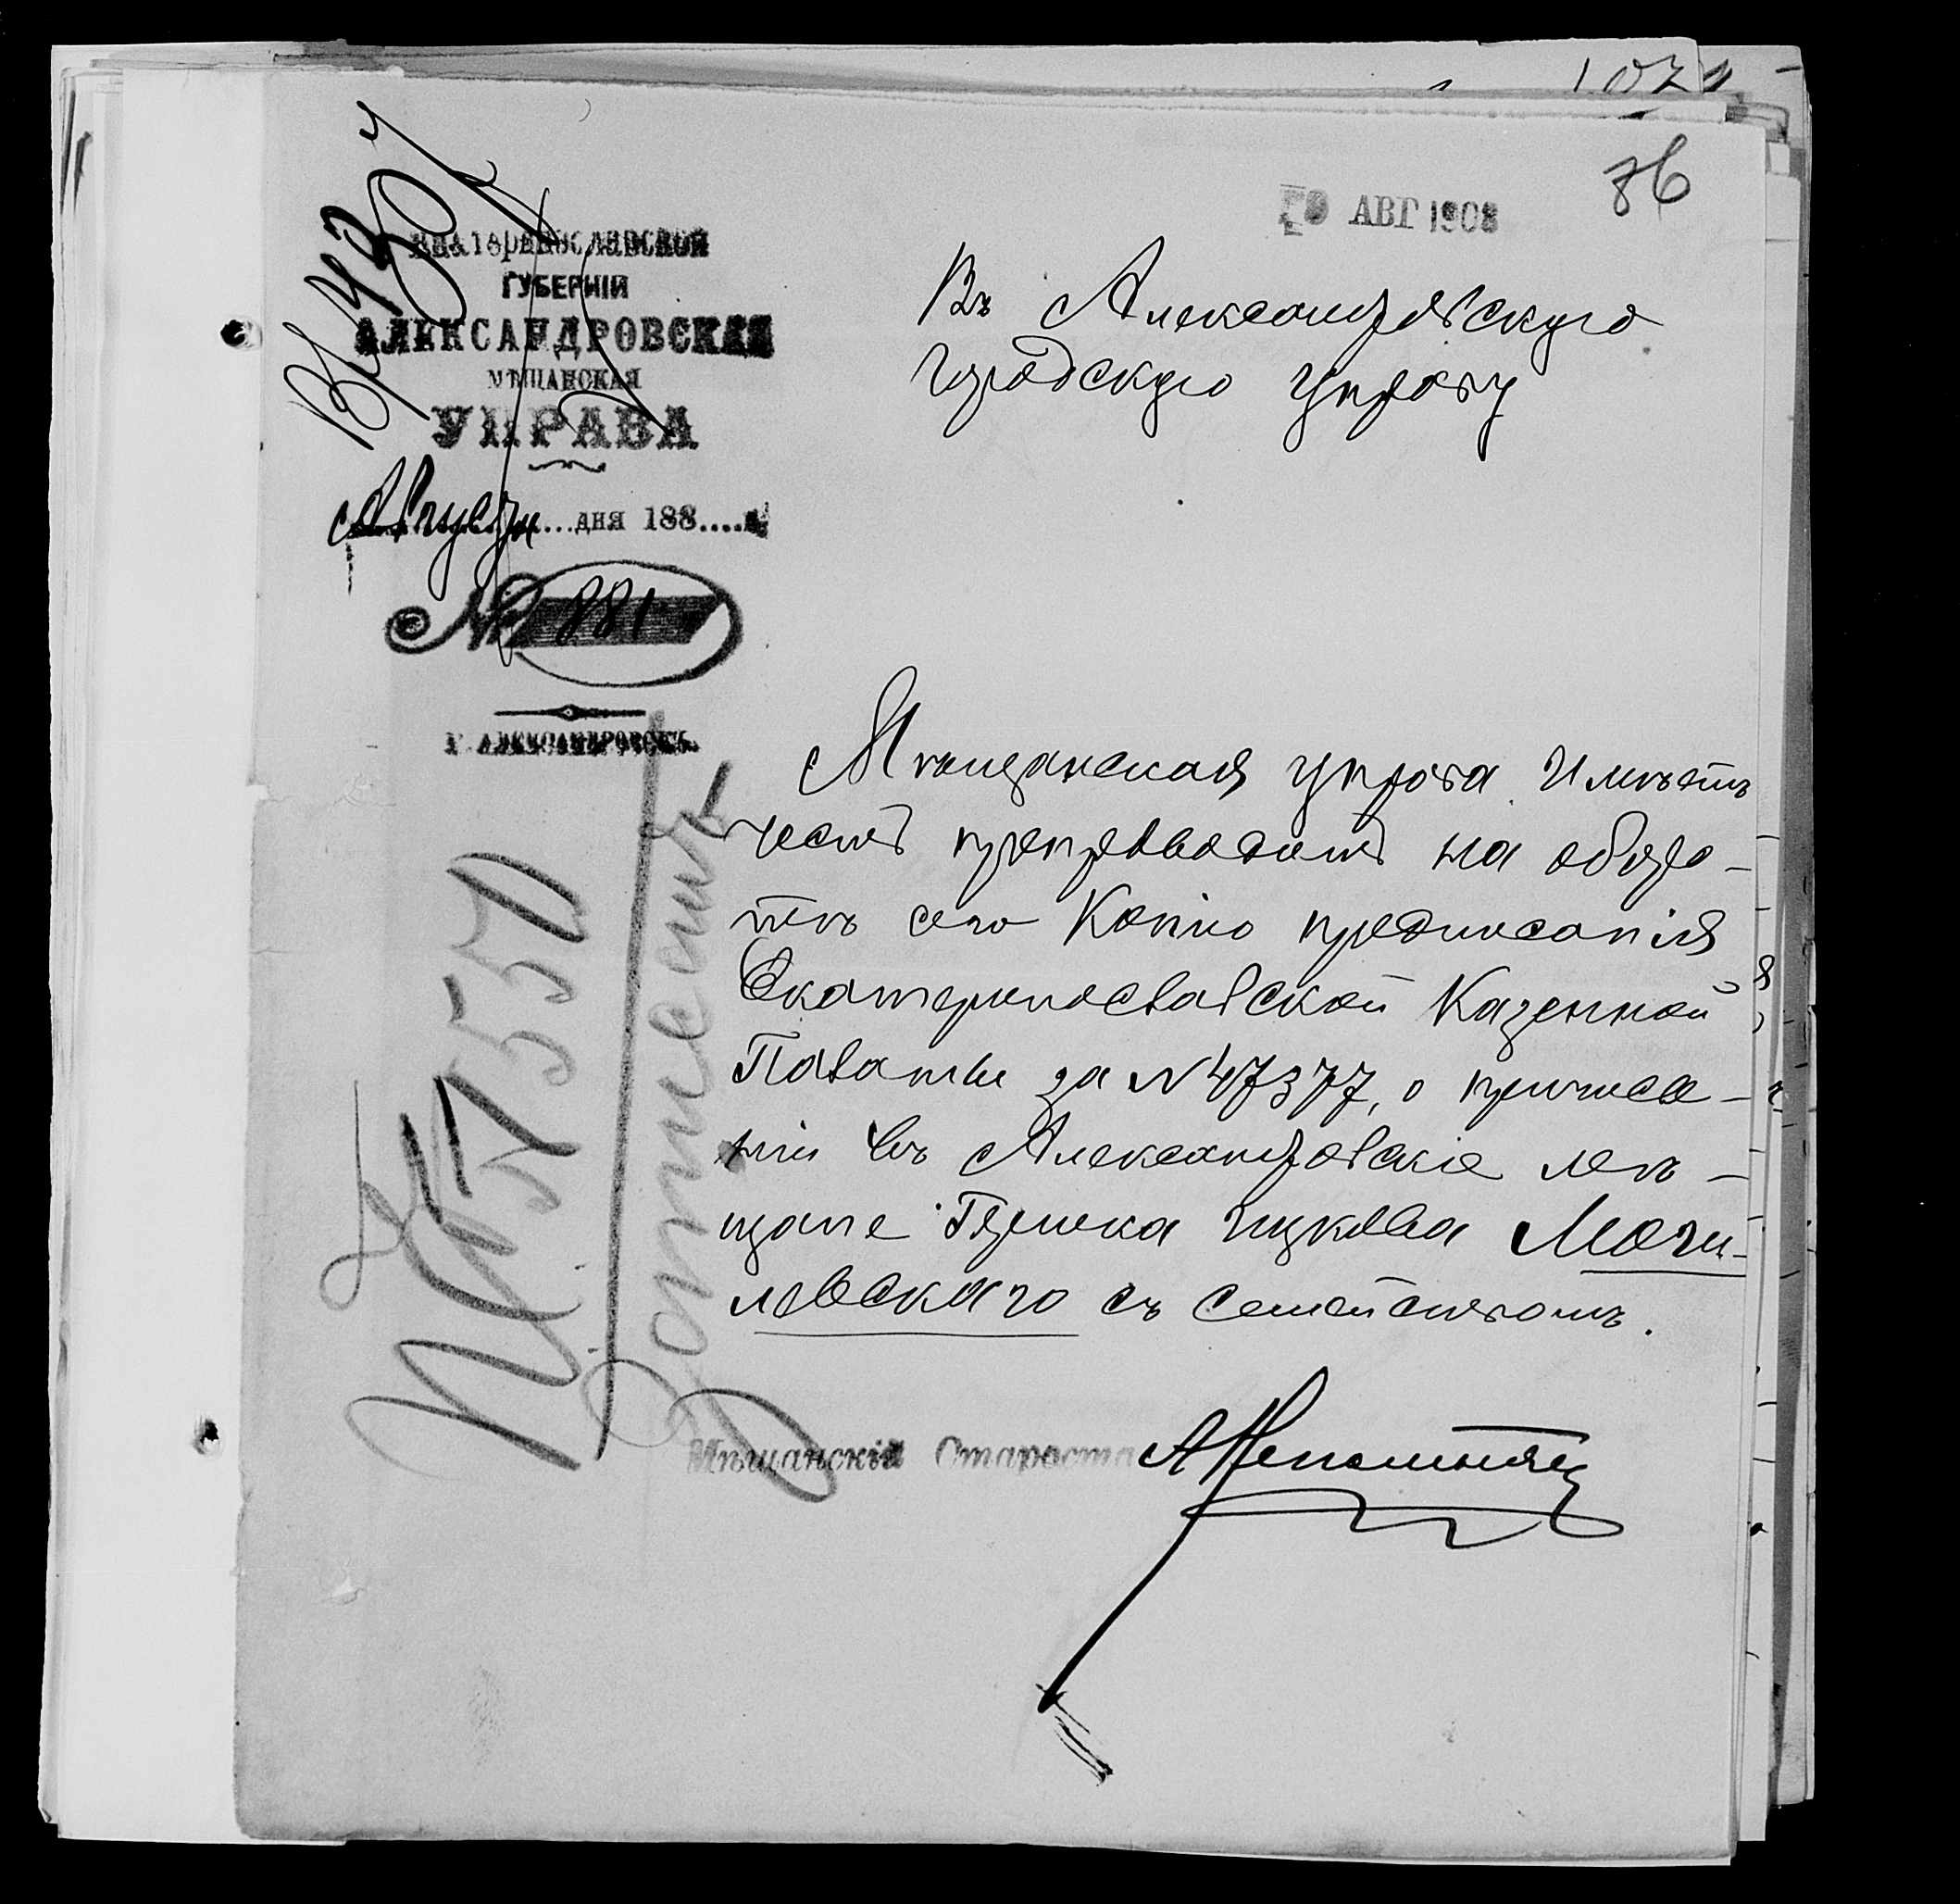 86
АВГ 1908
Екатеринославской
ГУБЕРНІИ
АЛЕКСАНДРОВСКАЯ
МѢЩАНСКАЯ
УПРАВА
Августа ... дня 188....
№ 881
Г. АЛЕКСАНДРОВСКЪ.
Въ Александровскую
городскую управу
Мѣщанская управа имѣетъ
честь препроводить на оборо-
тѣ сего копію предписанія
Екатеринославской Казенной
Палаты за № 47377, о причисле-
ніи въ Александровскіе мѣ-
щане Гершка Ицкова Моги-
левскаго съ семействомъ.
Мѣщанскій Староста